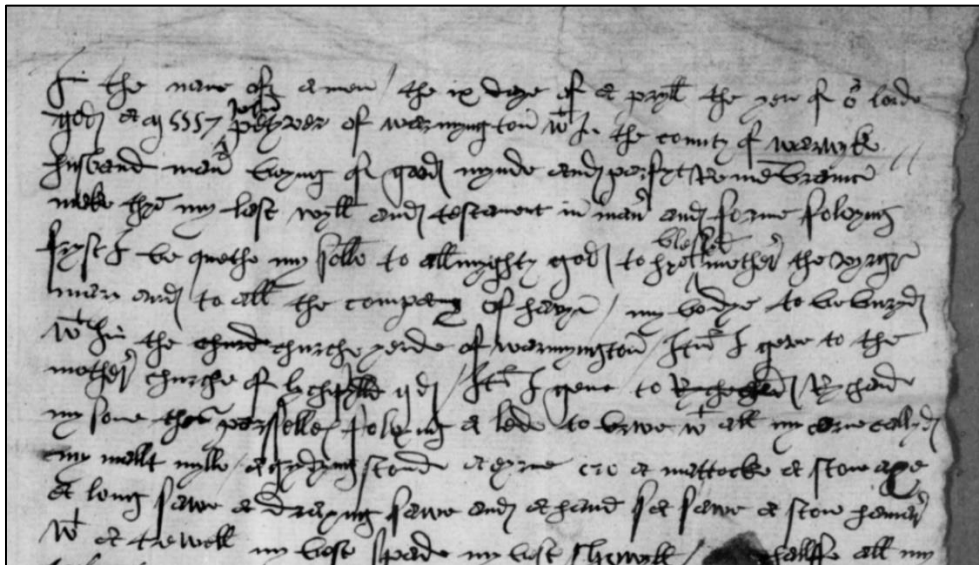 In the name of amen / the ix daye of apryll the yere of or lorde
god a m 5557 John petyver of warmyngton wt in the county of warwyke
husband man beyng of good mynde and parfyt Remembrance
make thys my last wyll and testament in maner and forme foloyng
fryst I be quethe my solle to all myghty god to hys blessed mother the vyrgin
mary and to all the company of havyn / my bodye to be buryd
wt hin the churche yerde of warmyngton / Itm I geve to the
mother churche of lychfylld ijd / Itm I geve to Rychard
my sone thes parselles foloyng a lede to brwe wt all my querne callyd
my mallt mylle / a gryndyng stone a eyrne cro a mattocke a stone axe
a long sawe a draxyng sawe and a hand sa sawe a stone hamer
wt a trewell my best spade my best showyll / halffe all my